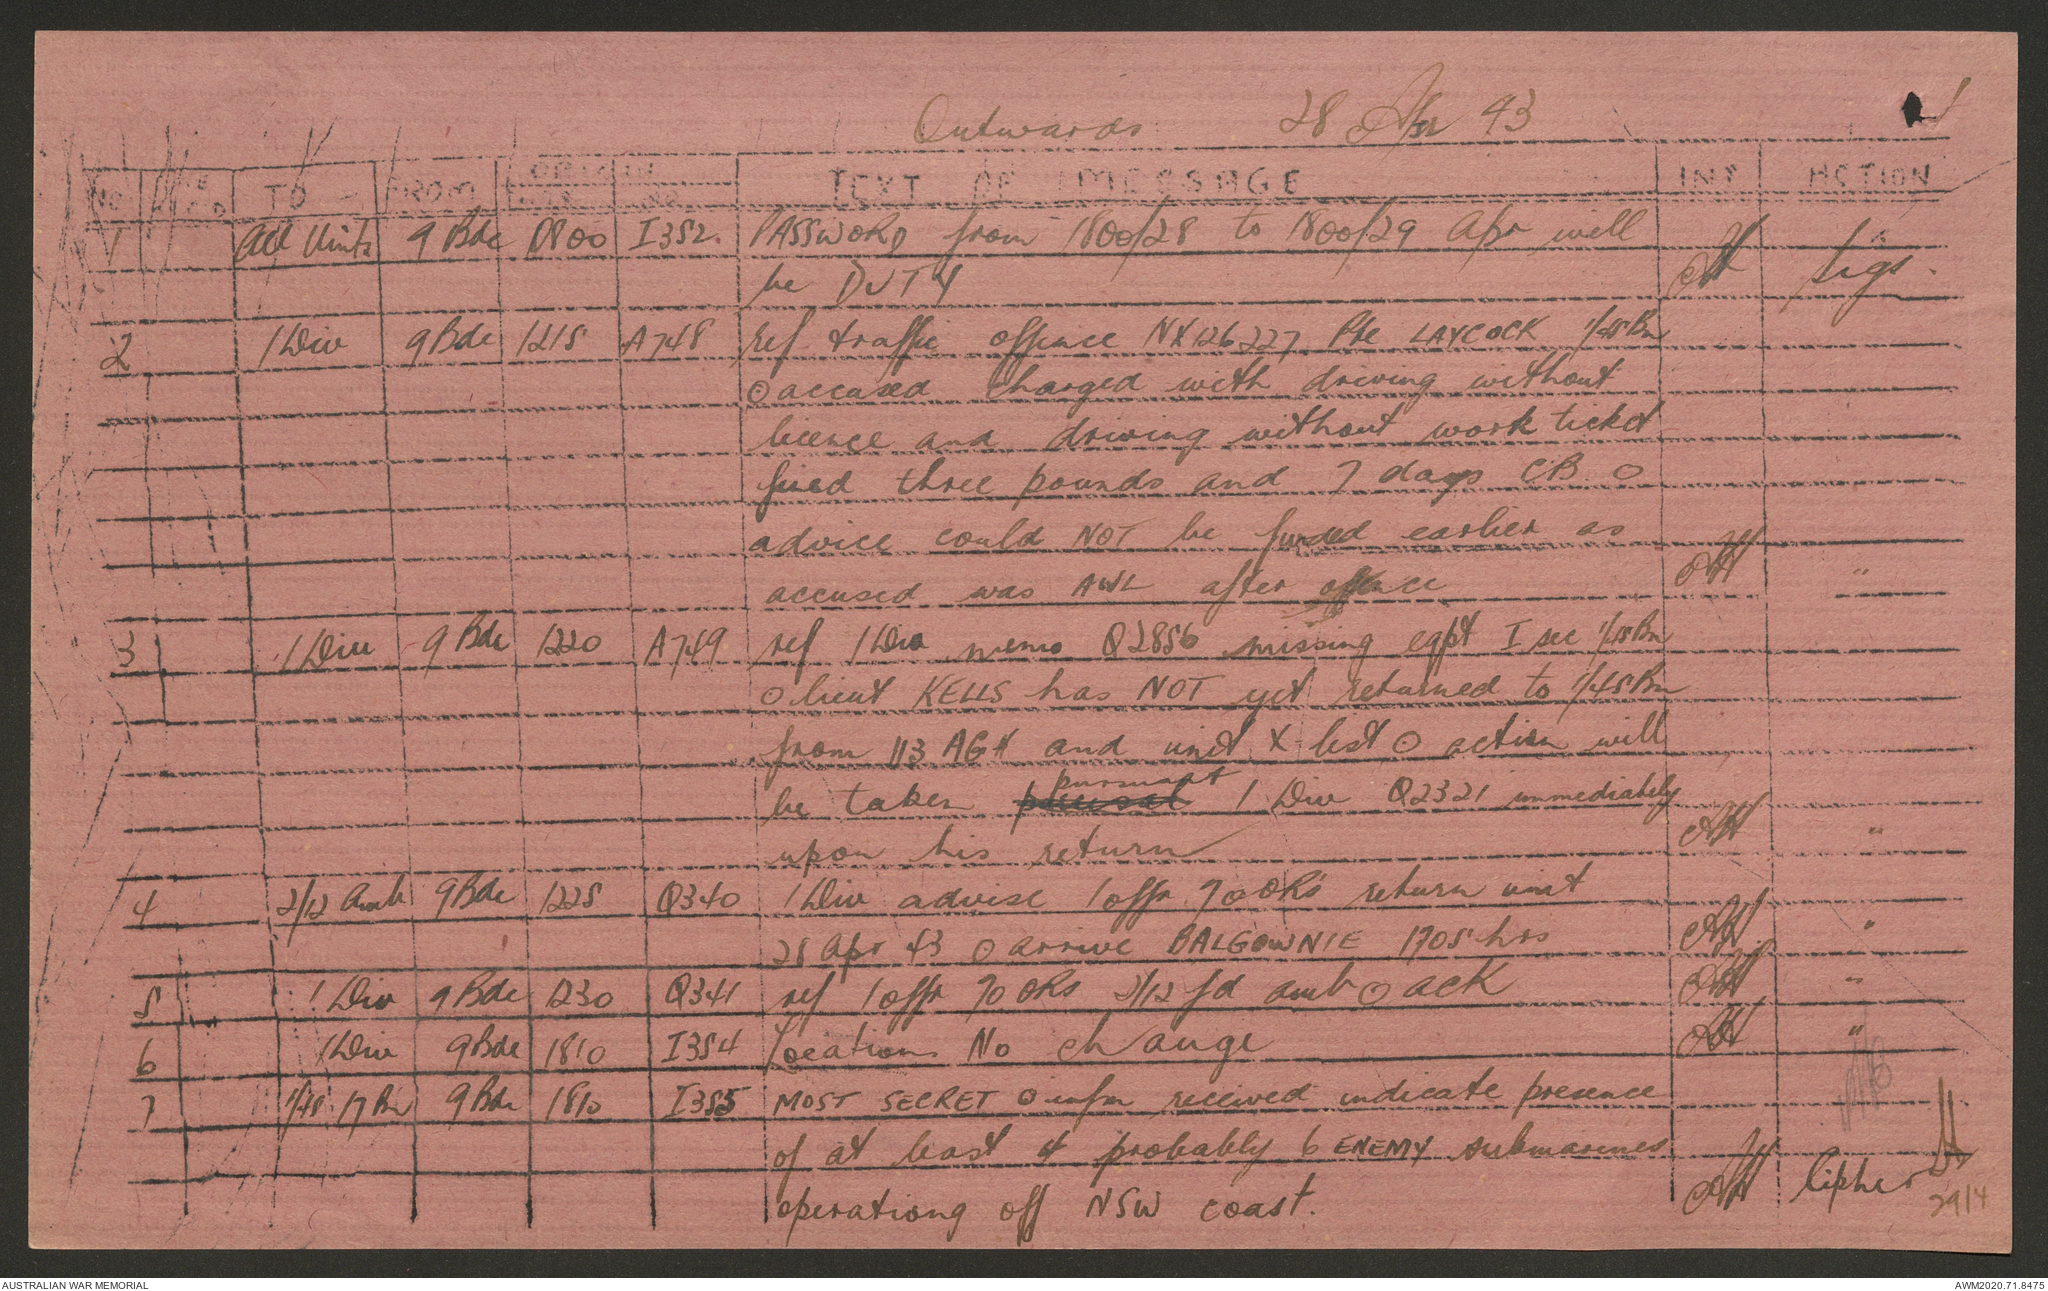 Outwards 28 Apr 43 1
NO TO FROM ORIGIN TEXT OF MESSAGE INT ACTION
1 All Units 9 Bde 0800 I352. PASSWORD from 1800/28 to 1800/29 Apr will
be DUTY Sigs.
2 1 Div 9 Bde 1215 A748 ref traffic offence NX126227 Pte LAYCOCK 1/45 Bn
⊙ accused charged with driving without
licence and driving without work ticket
fined three pounds and 7 days CB. O
advice could NOT be fwded earlier as
accused was AWL after offence "
3 1 Div 9 Bde 1220 A749 ref 1 Div memo Q2856 missing eqpt I sec 1/45 Bn
O lieut KELLS has NOT yet returned to 1/45 Bn
from 113 AGH and unit X list ⊙ action will
pursuant
be taken 1 Div Q2321 immediately
upon his return "
4 2/12 Amb 9 Bde 1225 Q340 1 Div advise 1 offr 70 ORs return unit
28 Apr 43 O arrive BALGOWNIE 1705 hrs "
5 1 Div 9 Bde 1230 Q341 ref 1 offr 70 ORs 2/12 fd amb ⊙ ack "
6 1 Div 9 Bde 1810 I354 Locations No change "
7 1/45 17 Bn 9 Bde 1810 I355 MOST SECRET O infm received indicate presence
of at least 4 probably 6 ENEMY submarines
operationg off NSW coast. Cipher
29/4
AUSTRALIAN WAR MEMORIAL AWM2020.71.8475